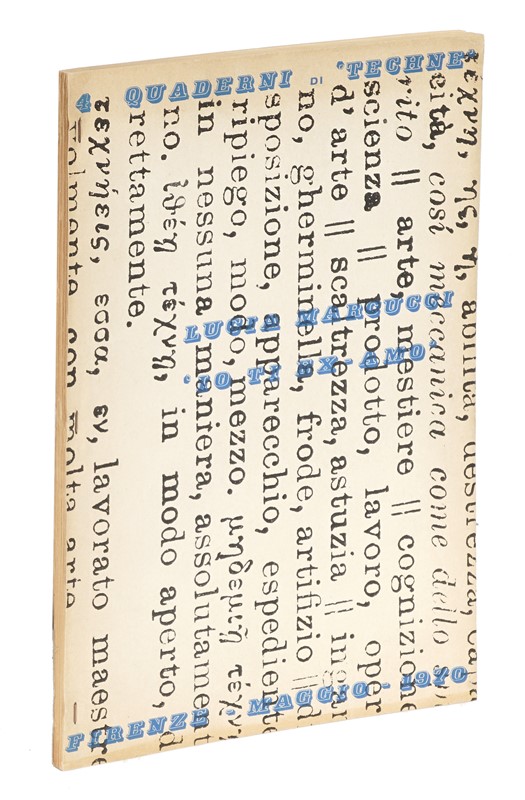 4 QUADERNI DI "TECHNE"
LUCIA MARCUCCI
"IO TI EX-AMO"
FIRENZE - MAGGIO - 1970
τέχνη, ης, ἡ, abilità, destrezza,
così meccanica come dello
rito || arte, mestiere || cognizione
scienza || prodotto, lavoro, oper
d'arte || scaltrezza, astuzia ||
no, gherminella, frode, artifizio ||
sposizione, apparecchio, espediente
ripiego, modo, mezzo. μηδεμιῇ τέχν
in nessuna maniera, assolutament
no. ἰθέῃ τέχνῃ, in modo aperto, d
rettamente.
τεχνήεις, εσσα, εν, lavorato maestre
volmente con molta arte